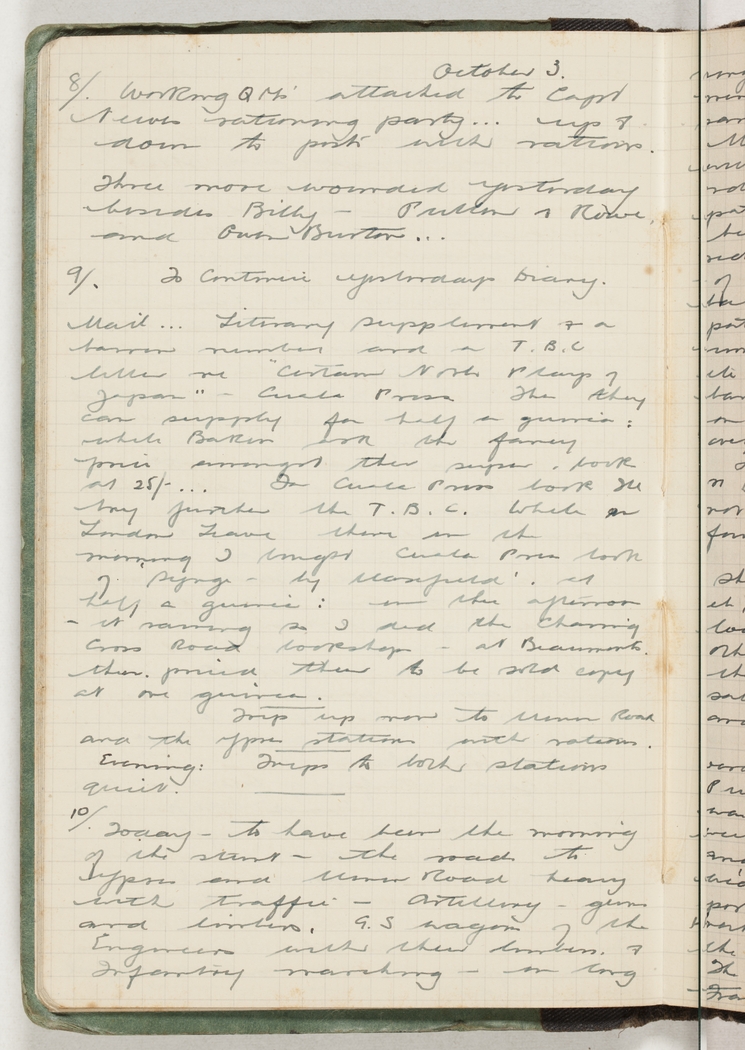 October 3.
8/. Working QMs' attached to Capt
rationing party... up &
down to posts with rations.
Three more wounded yesterday
besides Billy – Pullen & Rowe,
and Owen Burton...
9/. To continue yesterdays Diary.
Mail... Literary Supplement & a
number and a T.B.C
letter re "Certain Noble Plays of
Japan" – Cuala Press The they
can supply for half a guinea:
while Baker ask the fancy
price amongst their super. book
at 25/-... Cuala Press book
try further the T.B.C. While on
London Leave there in the
morning I bought Cuala Press book
of 'Synge – by Masefield'. at
half a guinea: in the afternoon
– it raining so I did the Charing
Cross Road bookshops – at Beaumonts.
then. priced their to be sold copy
at one guinea.
Trip up now to Menin Road
and the Ypres stations with rations.
Evening: Trips to both stations
quiet.
10/. Today – to have been the morning
of the stunt – the road to
Ypres and Menin Road heavy
with traffic – Artillery – guns
and limbers, G.S wagons of the
Engineers with their limbers. &
Infantry marching – in long